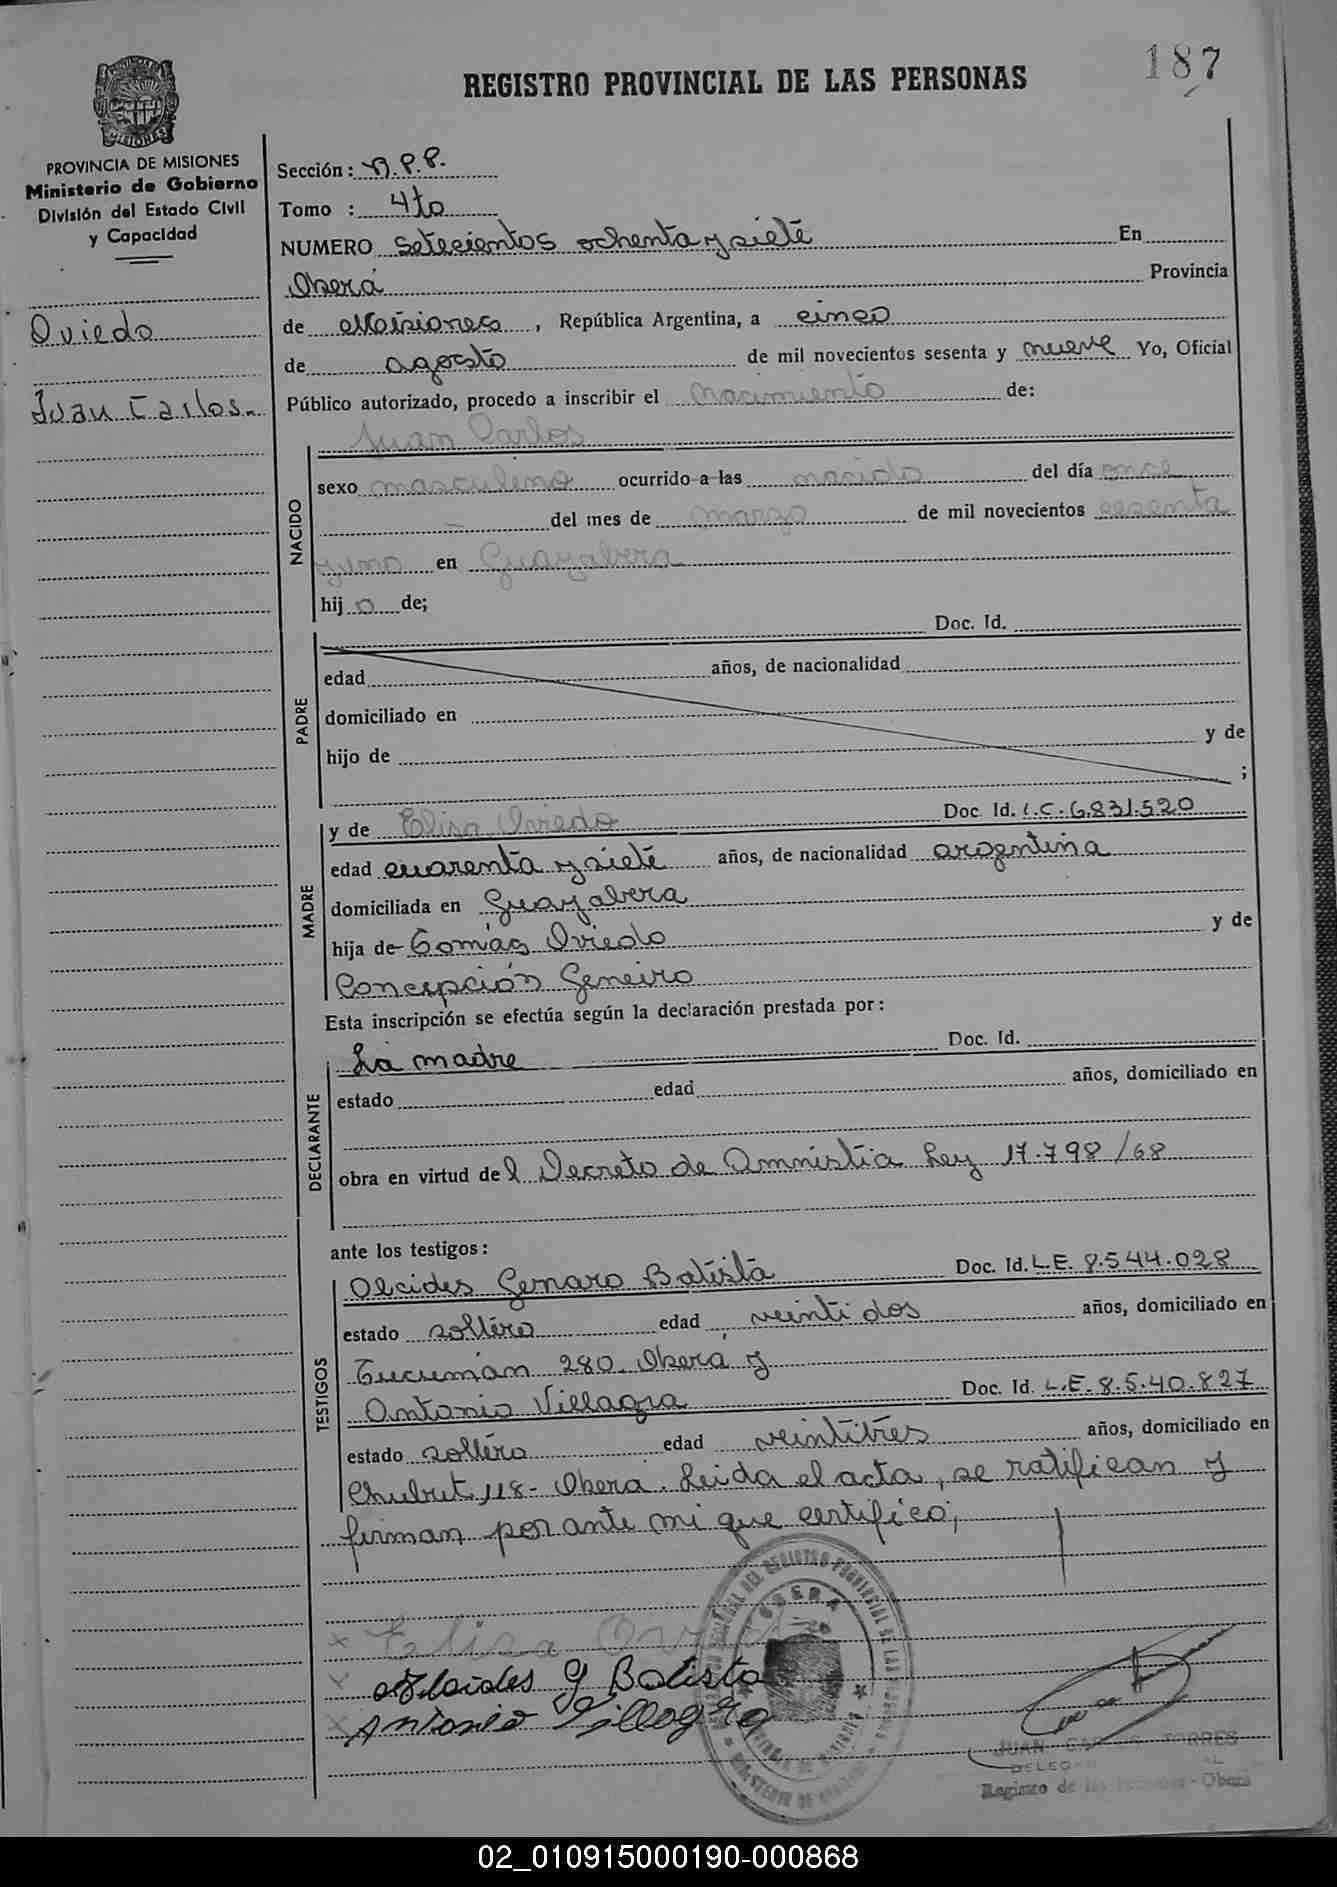 187
REGISTRO PROVINCIAL DE LAS PERSONAS
MISIONES
PROVINCIA DE MISIONES
Ministerio de Gobierno
División del Estado Civil
y Capacidad
Oviedo
Juan Carlos.
Sección: N.P.P.
Tomo : 4to
NUMERO setecientos ochenta y siete En
Oberá Provincia
de Misiones, República Argentina, a cinco
de agosto de mil novecientos sesenta y nueve Yo, Oficial
Público autorizado, procedo a inscribir el nacimiento de:
NACIDO
Juan Carlos
sexo masculino ocurrido a las nacido del día once
del mes de marzo de mil novecientos sesenta
y uno en Guayabera
hij o de;
PADRE
Doc. Id.
edad años, de nacionalidad
domiciliado en
hijo de y de
;
MADRE
y de Elisa Oviedo Doc. Id. L.C. 6.831.520
edad cuarenta y siete años, de nacionalidad argentina
domiciliada en Guayabera
hija de Tomás Oviedo y de
Concepción Geneiro
Esta inscripción se efectúa según la declaración prestada por:
DECLARANTE
La madre Doc. Id.
estado edad años, domiciliado en
obra en virtud del Decreto de Amnistia Ley 17.798/68
ante los testigos:
TESTIGOS
Alcides Genaro Batista Doc. Id. L.E. 8.544.028
estado soltero edad veintidos años, domiciliado en
Tucumán 280. Oberá y
Antonio Villagra Doc. Id. L.E. 8.540.827
estado soltero edad veintitres años, domiciliado en
Chubut 118- Oberá. Leida el acta, se ratifican y
firman por ante mi que certifico;
x Elisa Oviedo
x Alcides G Batista
x Antonio Villagra
OBERA
JUAN TORRES
Registro de las Personas - Oberá
02_010915000190-000868